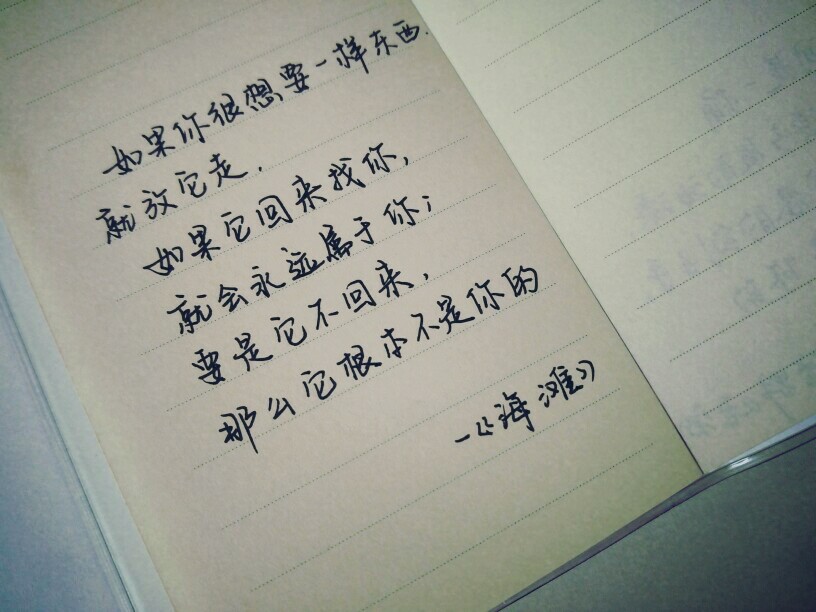 如果你很想要一样东西.
就放它走.
如果它回来找你,
就会永远属于你;
要是它不回来,
那么它根本不是你的
—《海滩》